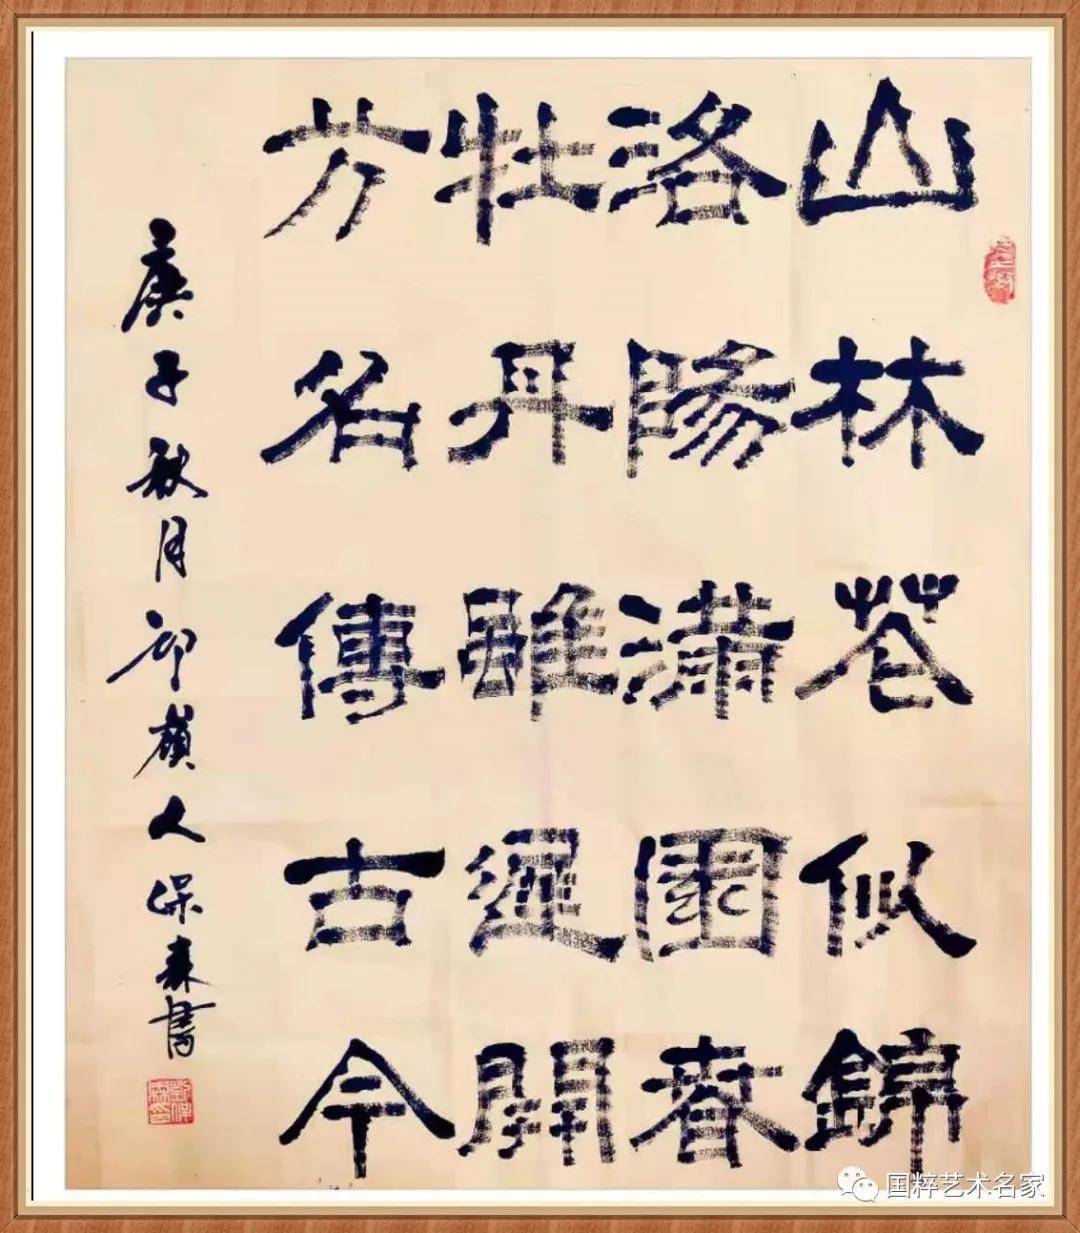 山林花似錦
洛陽滿園春
牡丹雖遲開
芳名傳古今
庚子秋月邙嶺人保森書
国粹艺术名家